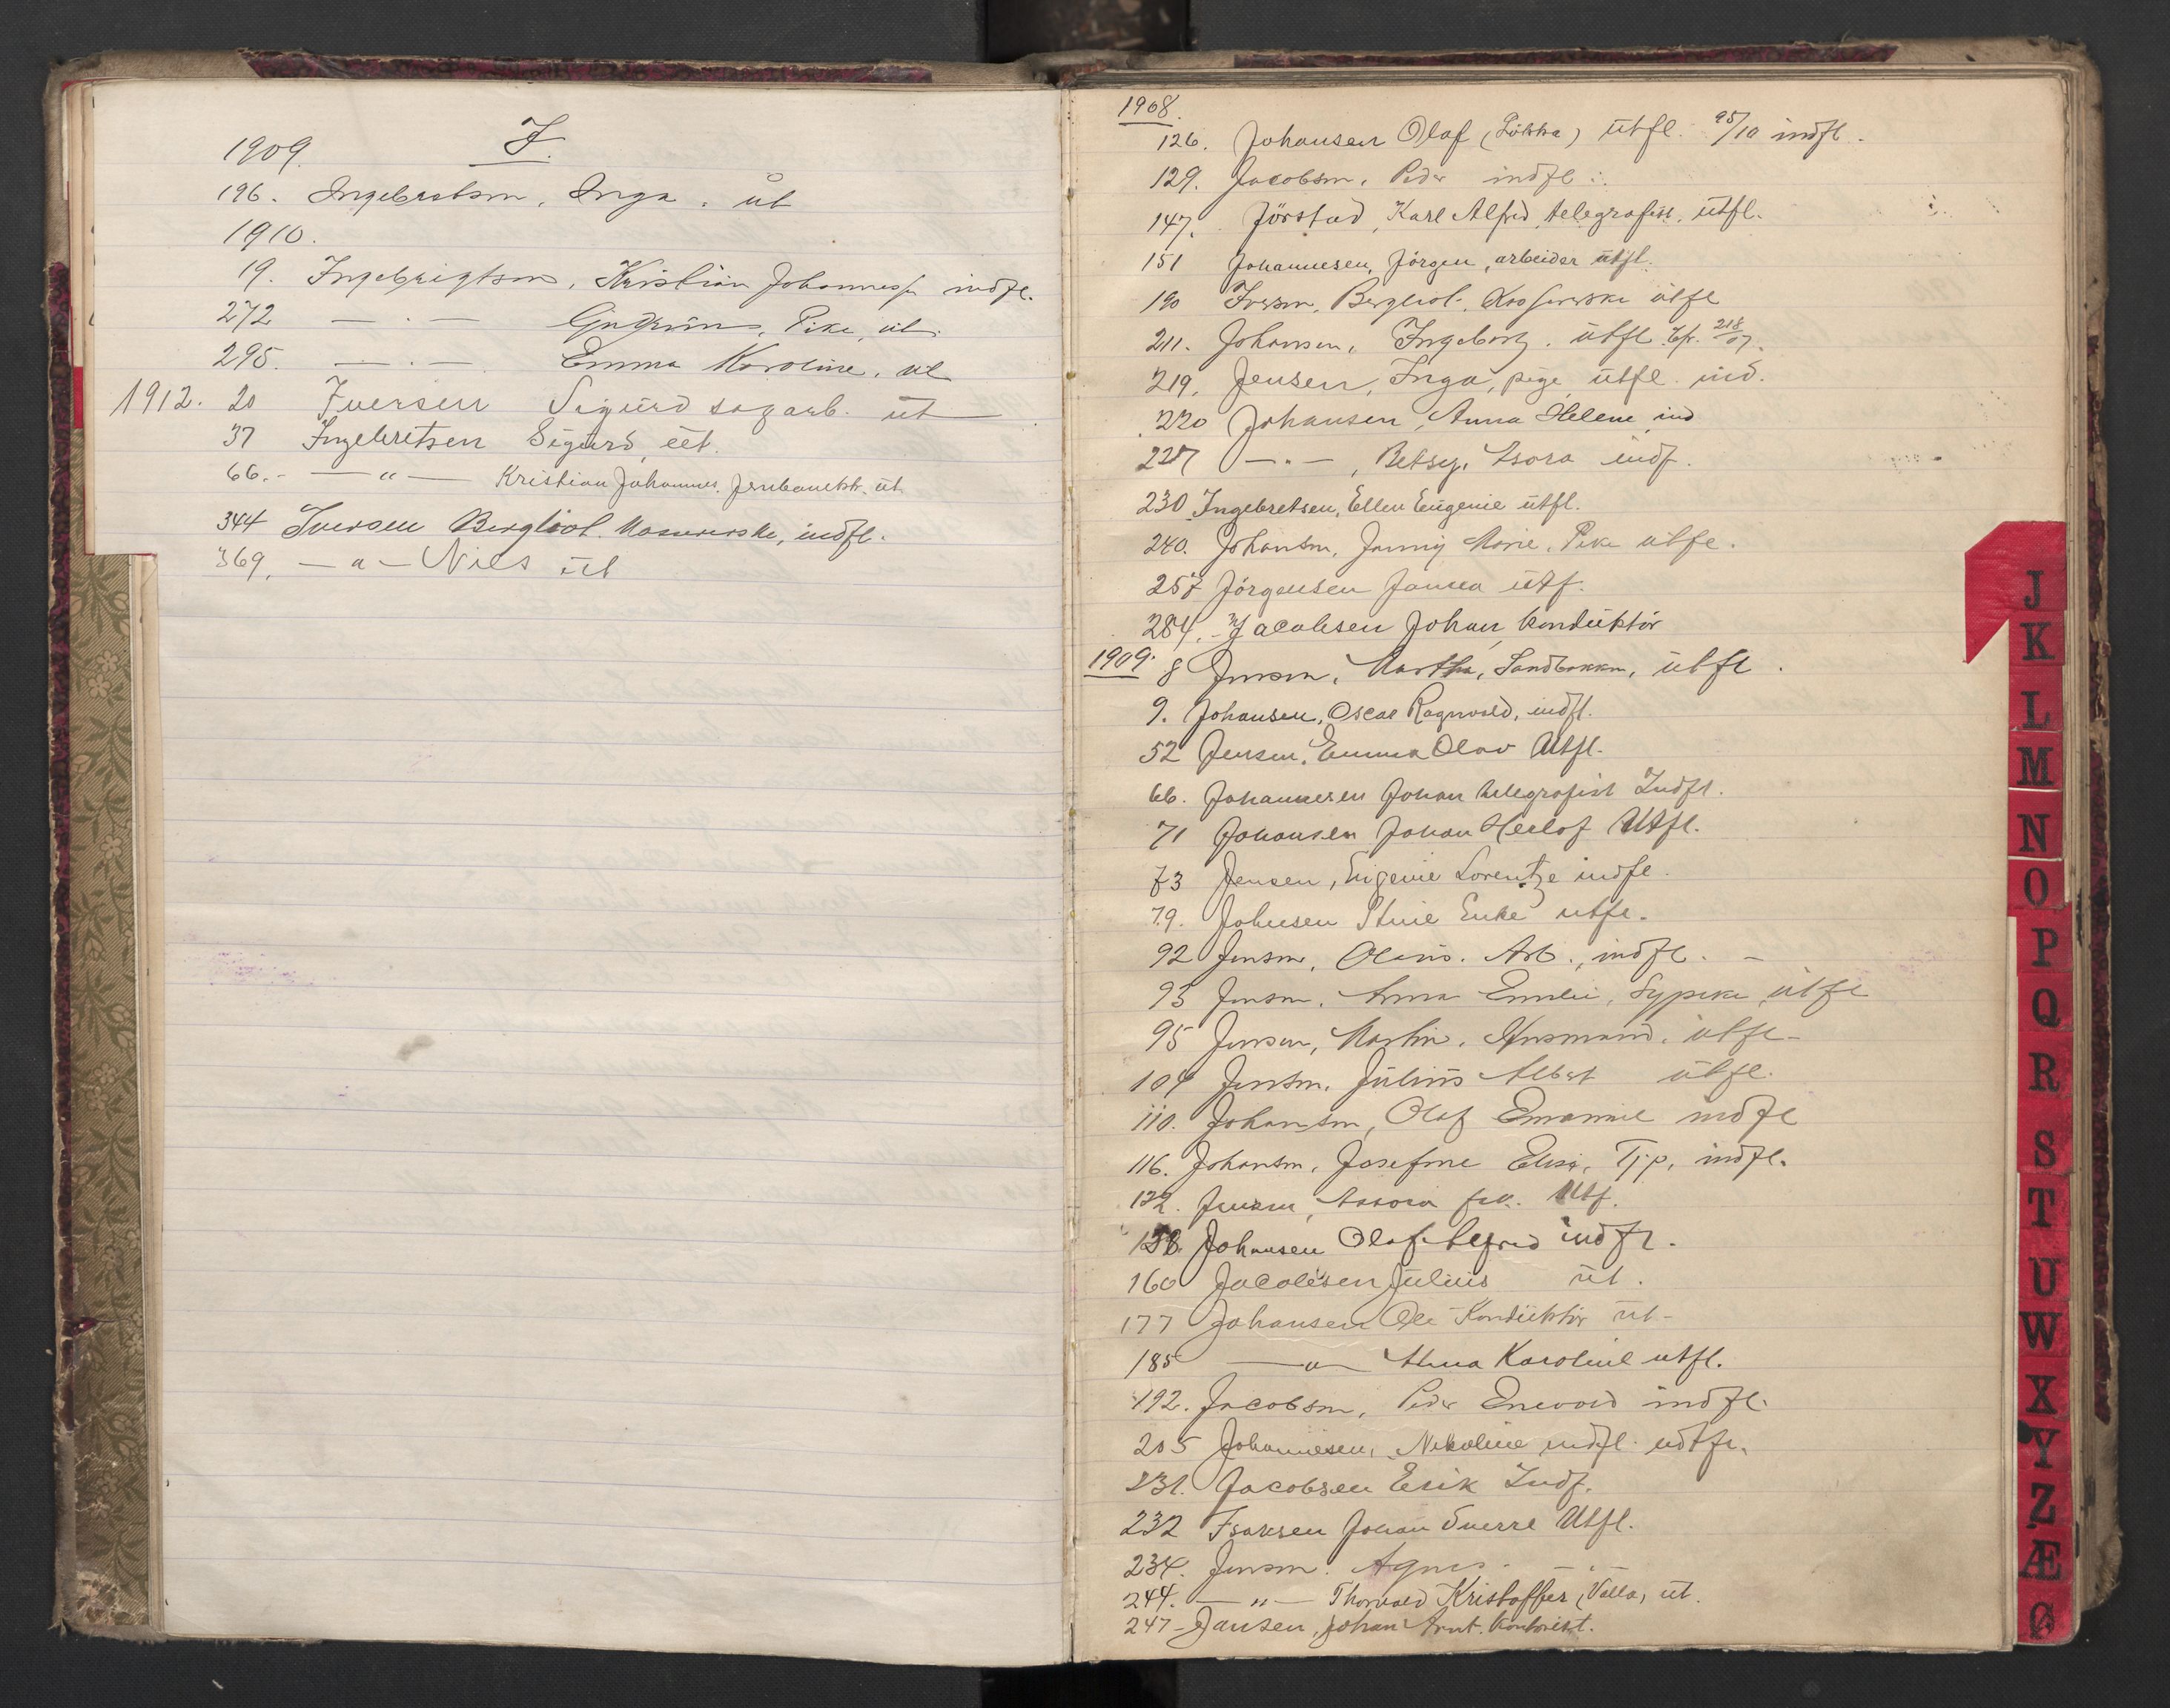 1909. I.
196. Ingebretsen, Inga. ut
1910.
19. Ingebrigtsen, Kristian Johannes indfl.
272 — . — Gudrun, Pike, ut.
295. — . — Emma Karoline, ut
1912. 20 Iversen Sigurd sagarb. ut
37 Ingebretsen Sigurd, ut.
66. - — " — Kristian Johannes, Jernbanektr. ut
344 Iversen Bergliot. indfl.
369. — " — Nils ut
1908.
126. Johansen Olaf (Løkka) utfl. 95/10 indfl.
129. Jacobsen, Peder indfl.
147. Jörstad, Karl Alfred, telegrafist, utfl.
151 Johannesen, Jörgen, arbeider utfl.
190 Iversen, Bergliot. utfl
211. Johansen, Ingeborg. utfl. 218/07.
219. Jensen, Inga, pige utfl. ind.
220 Johansen, Anna Helene ind
227 — " —, Betsy, Asora indf.
230 Ingebretsen, Ellen Eugenie utfl.
240. Johansen, Jenny Marie, Pike utfl.
257 Jörgensen utf.
284. Jacobsen Johan konduktör
1909. 8 Jensen, Martha, Sandbakken, utfl.
9. Johansen, Oscar Ragnvald, indfl.
52 Jensen, Emma Olav Utfl.
66. Johannesen Johan telegrafist Indfl.
71 Johansen Johan Herlof Utfl.
73 Jensen, Eugenie Lorentze indfl.
79. Johnsen Stine Enke utfl.
92 Jensen, Olaus. Arb., indfl. -
93 Jensen, Anna Emilie, Sypike, utfl
95 Jensen, Martin, Husmand, utfl -
104 Jensen, Julius Albert utfl.
110. Johansen, Olaf Emanuel indfl
116. Johansen, Josefine Elise, Tjp, indfl.
122. Jensen, Aasora frk. Utf.
138. Johansen Olaf Alfred indfl.
160 Jacobsen Julius ut.
177 Johansen Ole Konduktör ut -
185 — " — Anna Karoline utfl.
192. Jacobsen, Peder Enevold indfl.
205 Johannesen, Nikoline indfl. udtfl.
231. Jacobsen Erik Indf.
232 Isaksen Johan Sverre Utfl.
234. Jensen. Agnes - — " —
244. — " — Thorvald Kristoffer (Valla) ut.
247 - Jansen, Johan Arnt. kontorist.
J
K
L
M
N
O
P
Q
R
S
T
U
W
X
Y
Z
Æ
Ø